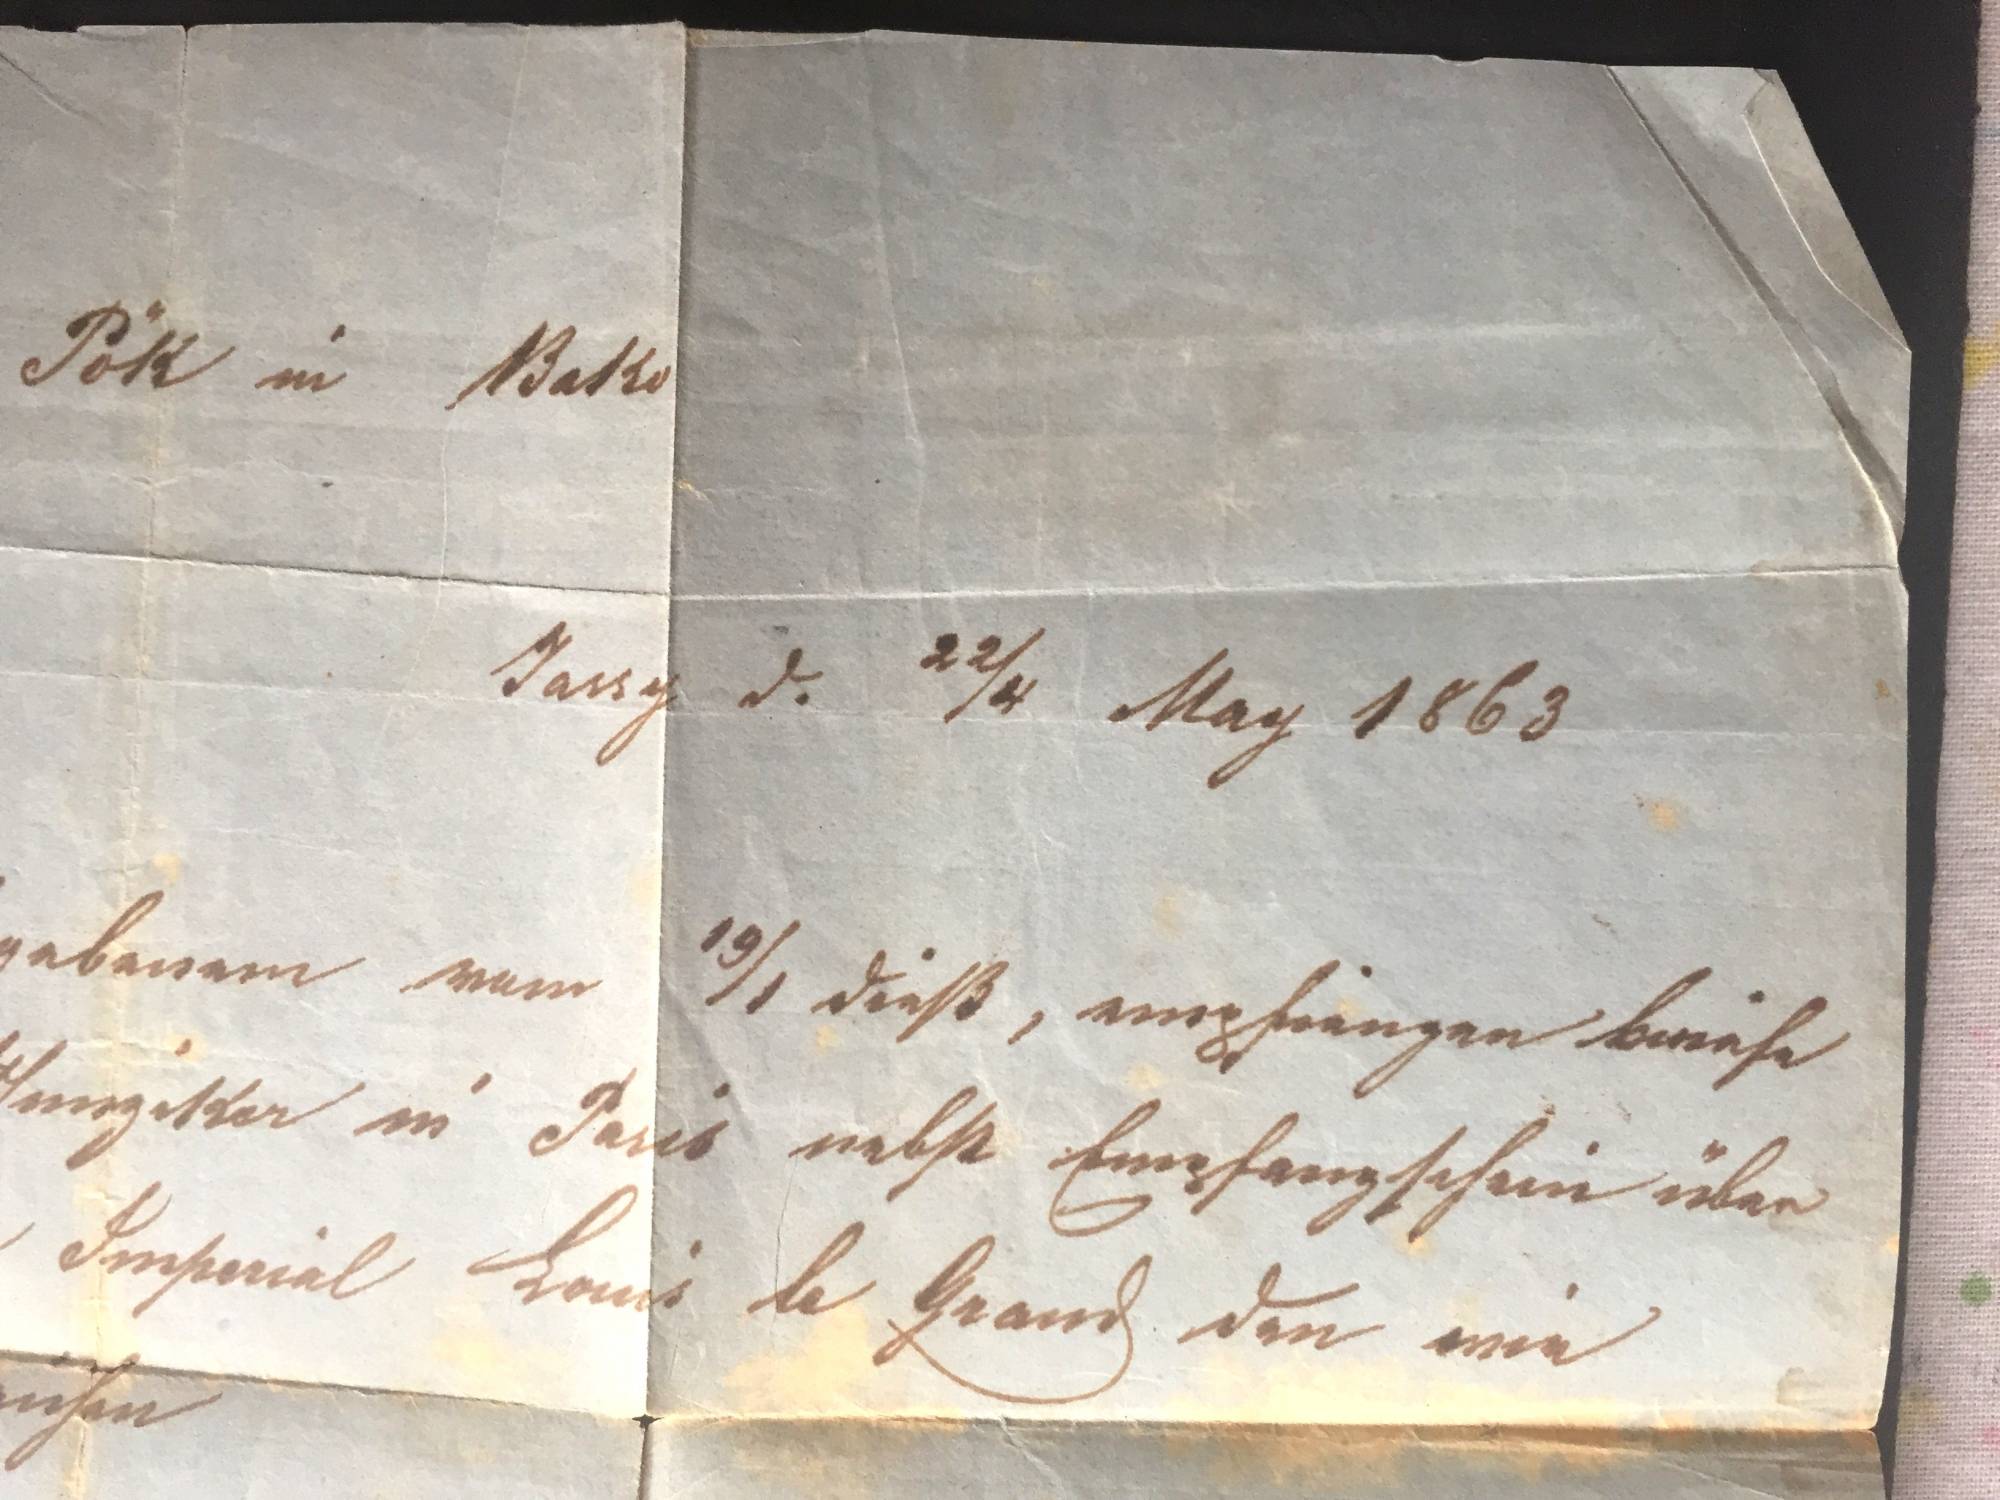 Pök in Bako
Jassy d. 22/4 May 1863
gebenem vom 19/1 dieß, empfiengen briefe
Hunziker in Paris nebst Empfangschein über
Imperial Louis le Grand den wir